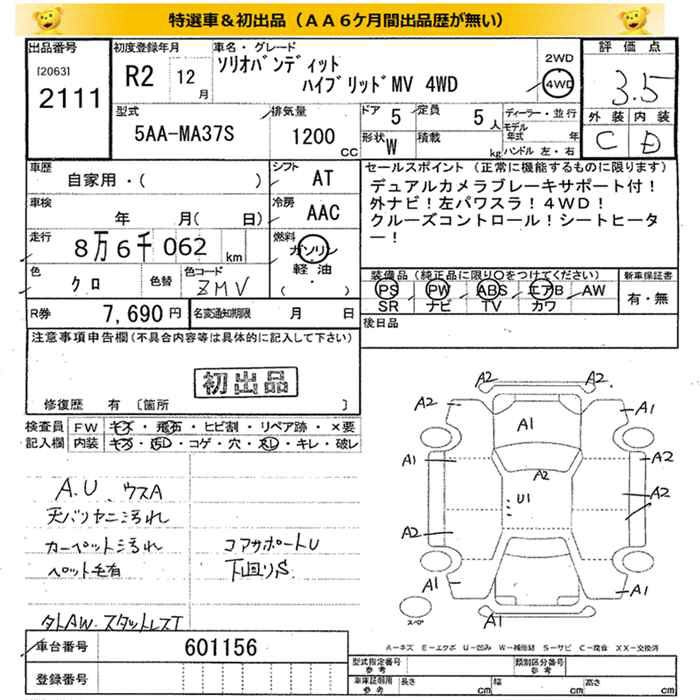 特選車＆初出品（ＡＡ６ケ月間出品歴が無い）
出品番号 初度登録年月 車名・グレード 2WD 評価点
[2063] R2 12月 ソリオバンディット 4WD
2111 ハイブリッドMV 4WD 3.5
型式 排気量 ドア 5 定員 5人 ディーラー・並行 外装 内装
5AA-MA37S 1200cc 形状 W 積載 kg モデル年式 年 C D
ハンドル 左・右
車歴 シフト セールスポイント（正常に機能するものに限ります）
自家用・( ) AT デュアルカメラブレーキサポート付！
車検 冷房 外ナビ！左パワスラ！４WD！
年 月(日) AAC クルーズコントロール！シートヒータ
走行 燃料 ー！
8万6千062km ガソリン
色 色替 色コード 軽油 装備品（純正品に限り○をつけてください） 新車保証書
クロ ZMV (・) PS PW ABS エアB AW 有・無
SR ナビ TV カワ
R券 7,690円 名変通知期限 月 日 後日品
注意事項申告欄(不具合内容等は具体的に記入して下さい)
初出品
修復歴 有 [箇所 ]
検査員 FW キズ・飛石・ヒビ割・リペア跡・×要
記入欄 内装 キズ・汚レ・コゲ・穴・スレ・キレ・破レ
A.U、ウスA
天バリヤニ汚れ
カーペット汚れ コアサポートU
ペット毛有 下回りS
外AW.スタットレスT
A2 A2
A2 A1 A1
A1 A2 A2
U1 A2
A2
A1 A1
スペア A1
車台番号 601156
A－キズ E－エクボ U－凹み W－補修跡 S－サビ C－腐食 XX－交換済
登録番号
型式指定番号 参考 類別区分番号 参考
車庫証明用 参考 長さ cm 幅 cm 高さ cm